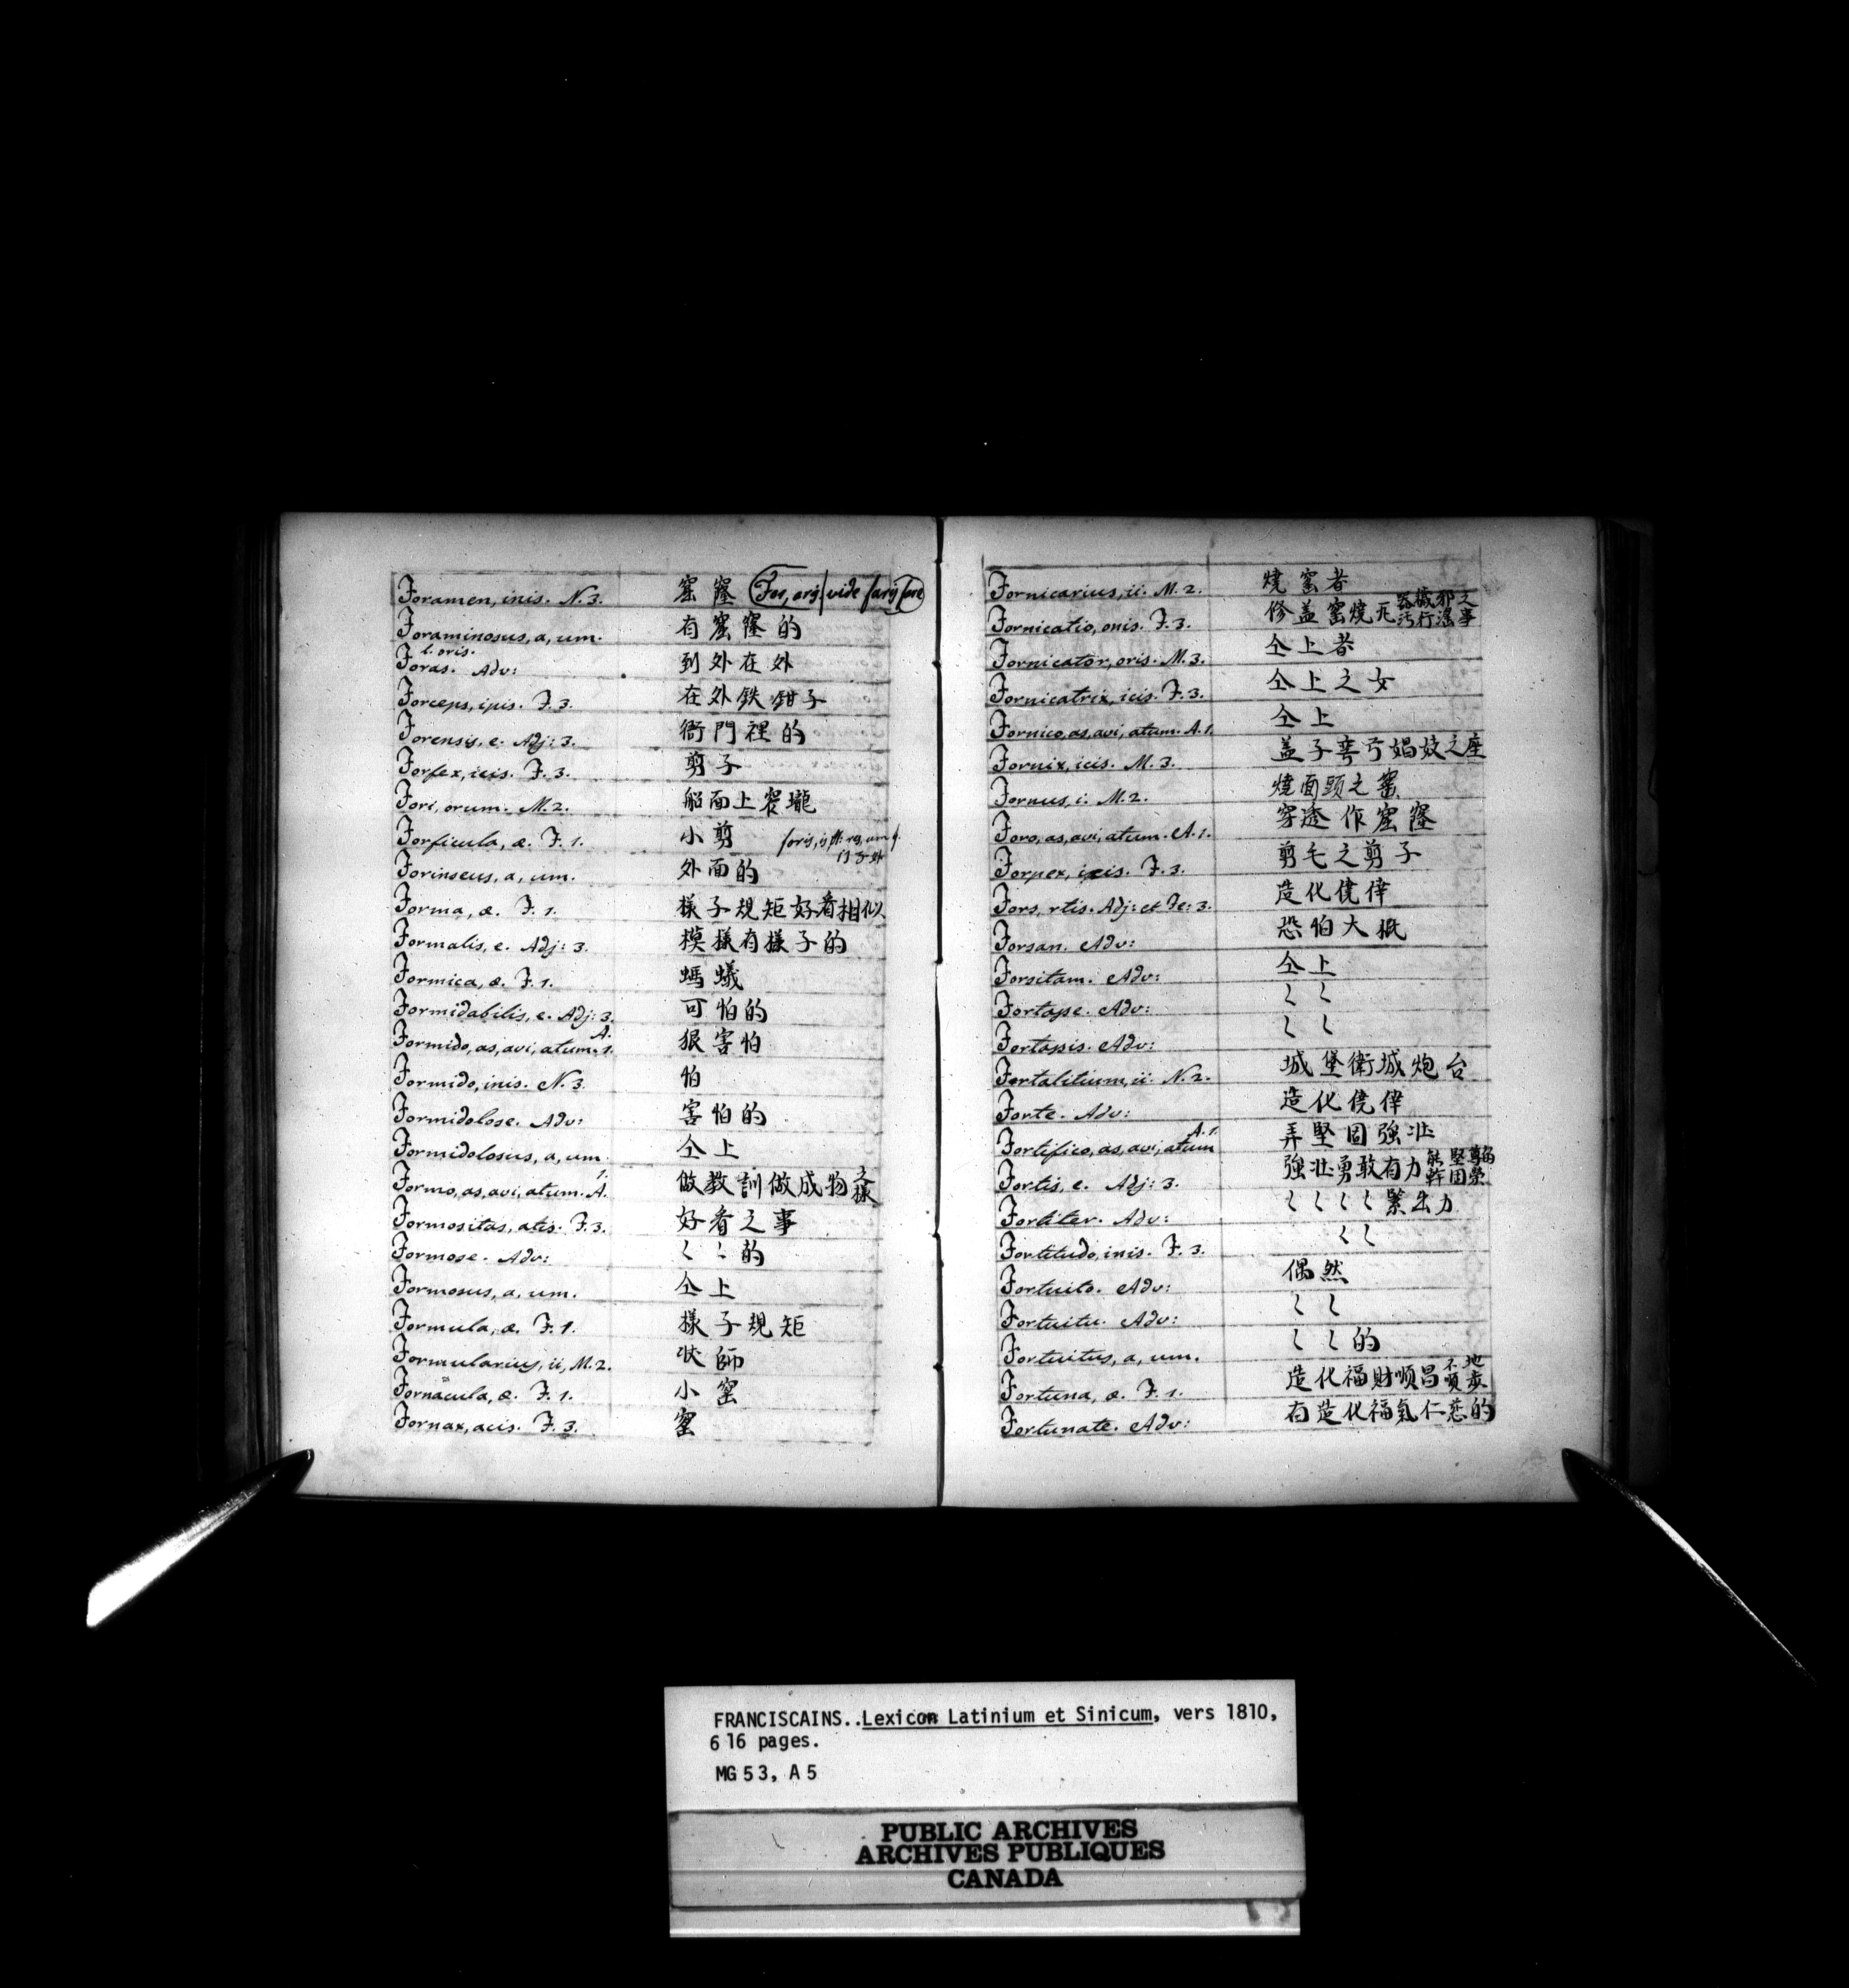 Foramen, inis. N. 3. 窟窿
Foraminosus, a, um. 有窟窿的
l. oris.
Foras. Adv: 到外在外
Forceps, ipis. F. 3. 在外鉄鉗子
Forensis, e. Adj: 3. 衙門裡的
Forfex, icis. F. 3. 剪子
Fori, orum. M. 2. 船面上窂瓏
Forficula, æ. F. 1. 小剪
Forinseus, a, um. 外面的
Forma, æ. F. 1. 樣子規矩好看相似
Formalis, e. Adj: 3. 模樣有樣子的
Formica, æ. F. 1. 螞蟻
Formidabilis, e. Adj: 3. 可怕的
Formido, as, avi, atum. A. 1. 狠害怕
Formido, inis. N. 3. 怕
Formidolose. Adv: 害怕的
Formidolosus, a, um. 仝上
Formo, as, avi, atum. A. 1. 做教訓做成物之樣
Formositas, atis. F. 3. 好看之事
Formose. Adv: 〻〻的
Formosus, a, um. 仝上
Formula, æ. F. 1. 樣子規矩
Formularius, ii, M. 2. 状師
Fornacula, æ. F. 1. 小窰
Fornax, acis. F. 3. 窰
Fornicarius, ii. M. 2. 燒窰者
Fornicatio, onis. F. 3. 修盖窰燒瓦器械邪之污行滛事
Fornicator, oris. M. 3. 仝上者
Fornicatrix, icis. F. 3. 仝上之女
Fornico, as, avi, atum. A. 1. 仝上
Fornix, icis. M. 3. 盖子弯弓娼妓之座
Fornus, i. M. 2. 燒面頭之窰
Foro, as, avi, atum. A. 1. 穿透作窟窿
Forpex, icis. F. 3. 剪毛之剪子
Fors, rtis. Adj: et Fe: 3. 造化僥倖
Forsan. Adv: 恐怕大抵
Forsitam. Adv: 仝上
Fortasse. Adv: 〻〻
Fortassis. Adv: 〻〻
Fortalitium, ii. N. 2. 城堡衛城炮台
Forte. Adv: 造化僥倖
Fortifico, as, avi, atum A. 1. 弄堅固強壮
Fortis, e. Adj: 3. 強壮勇敢有力能幹堅固
Fortiter. Adv: 〻〻〻〻緊出力
Fortitudo, inis. F. 3. 〻〻
Fortuito. Adv: 偶然
Fortuitu. Adv: 〻〻
Fortuitus, a, um. 〻〻的
Fortuna, æ. F. 1. 造化福財順昌不順
Fortunate. Adv: 有造化福氣仁慈的
FRANCISCAINS..Lexicon Latinium et Sinicum, vers 1810,
616 pages.
MG 53, A 5
PUBLIC ARCHIVES
ARCHIVES PUBLIQUES
CANADA